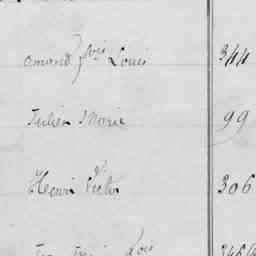 Amand fois Louis 344
Julien Marie 99
Henri Victor 306